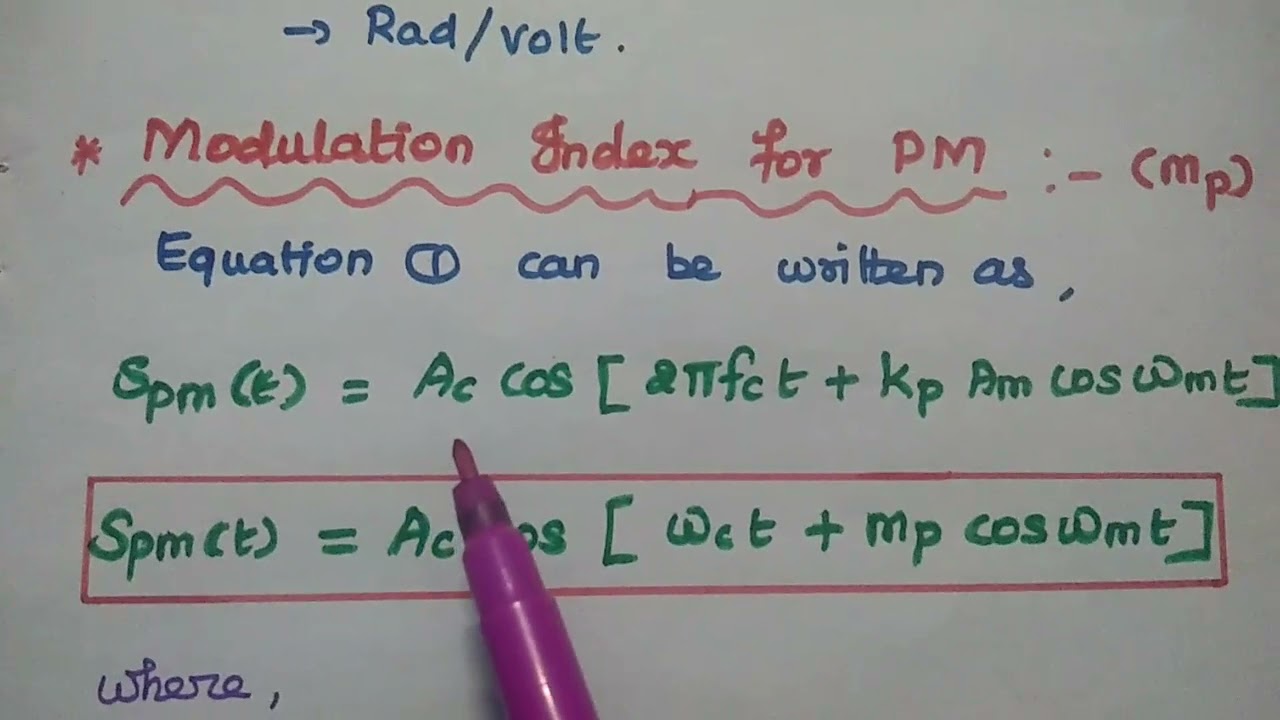 → Rad/volt.
* Modulation Index for PM :- (mp)
Equation ① can be written as,
Spm(t) = Ac cos [2πfct + kp Am cos ωmt]
Spm(t) = Ac cos [ωct + mp cos ωmt]
where,